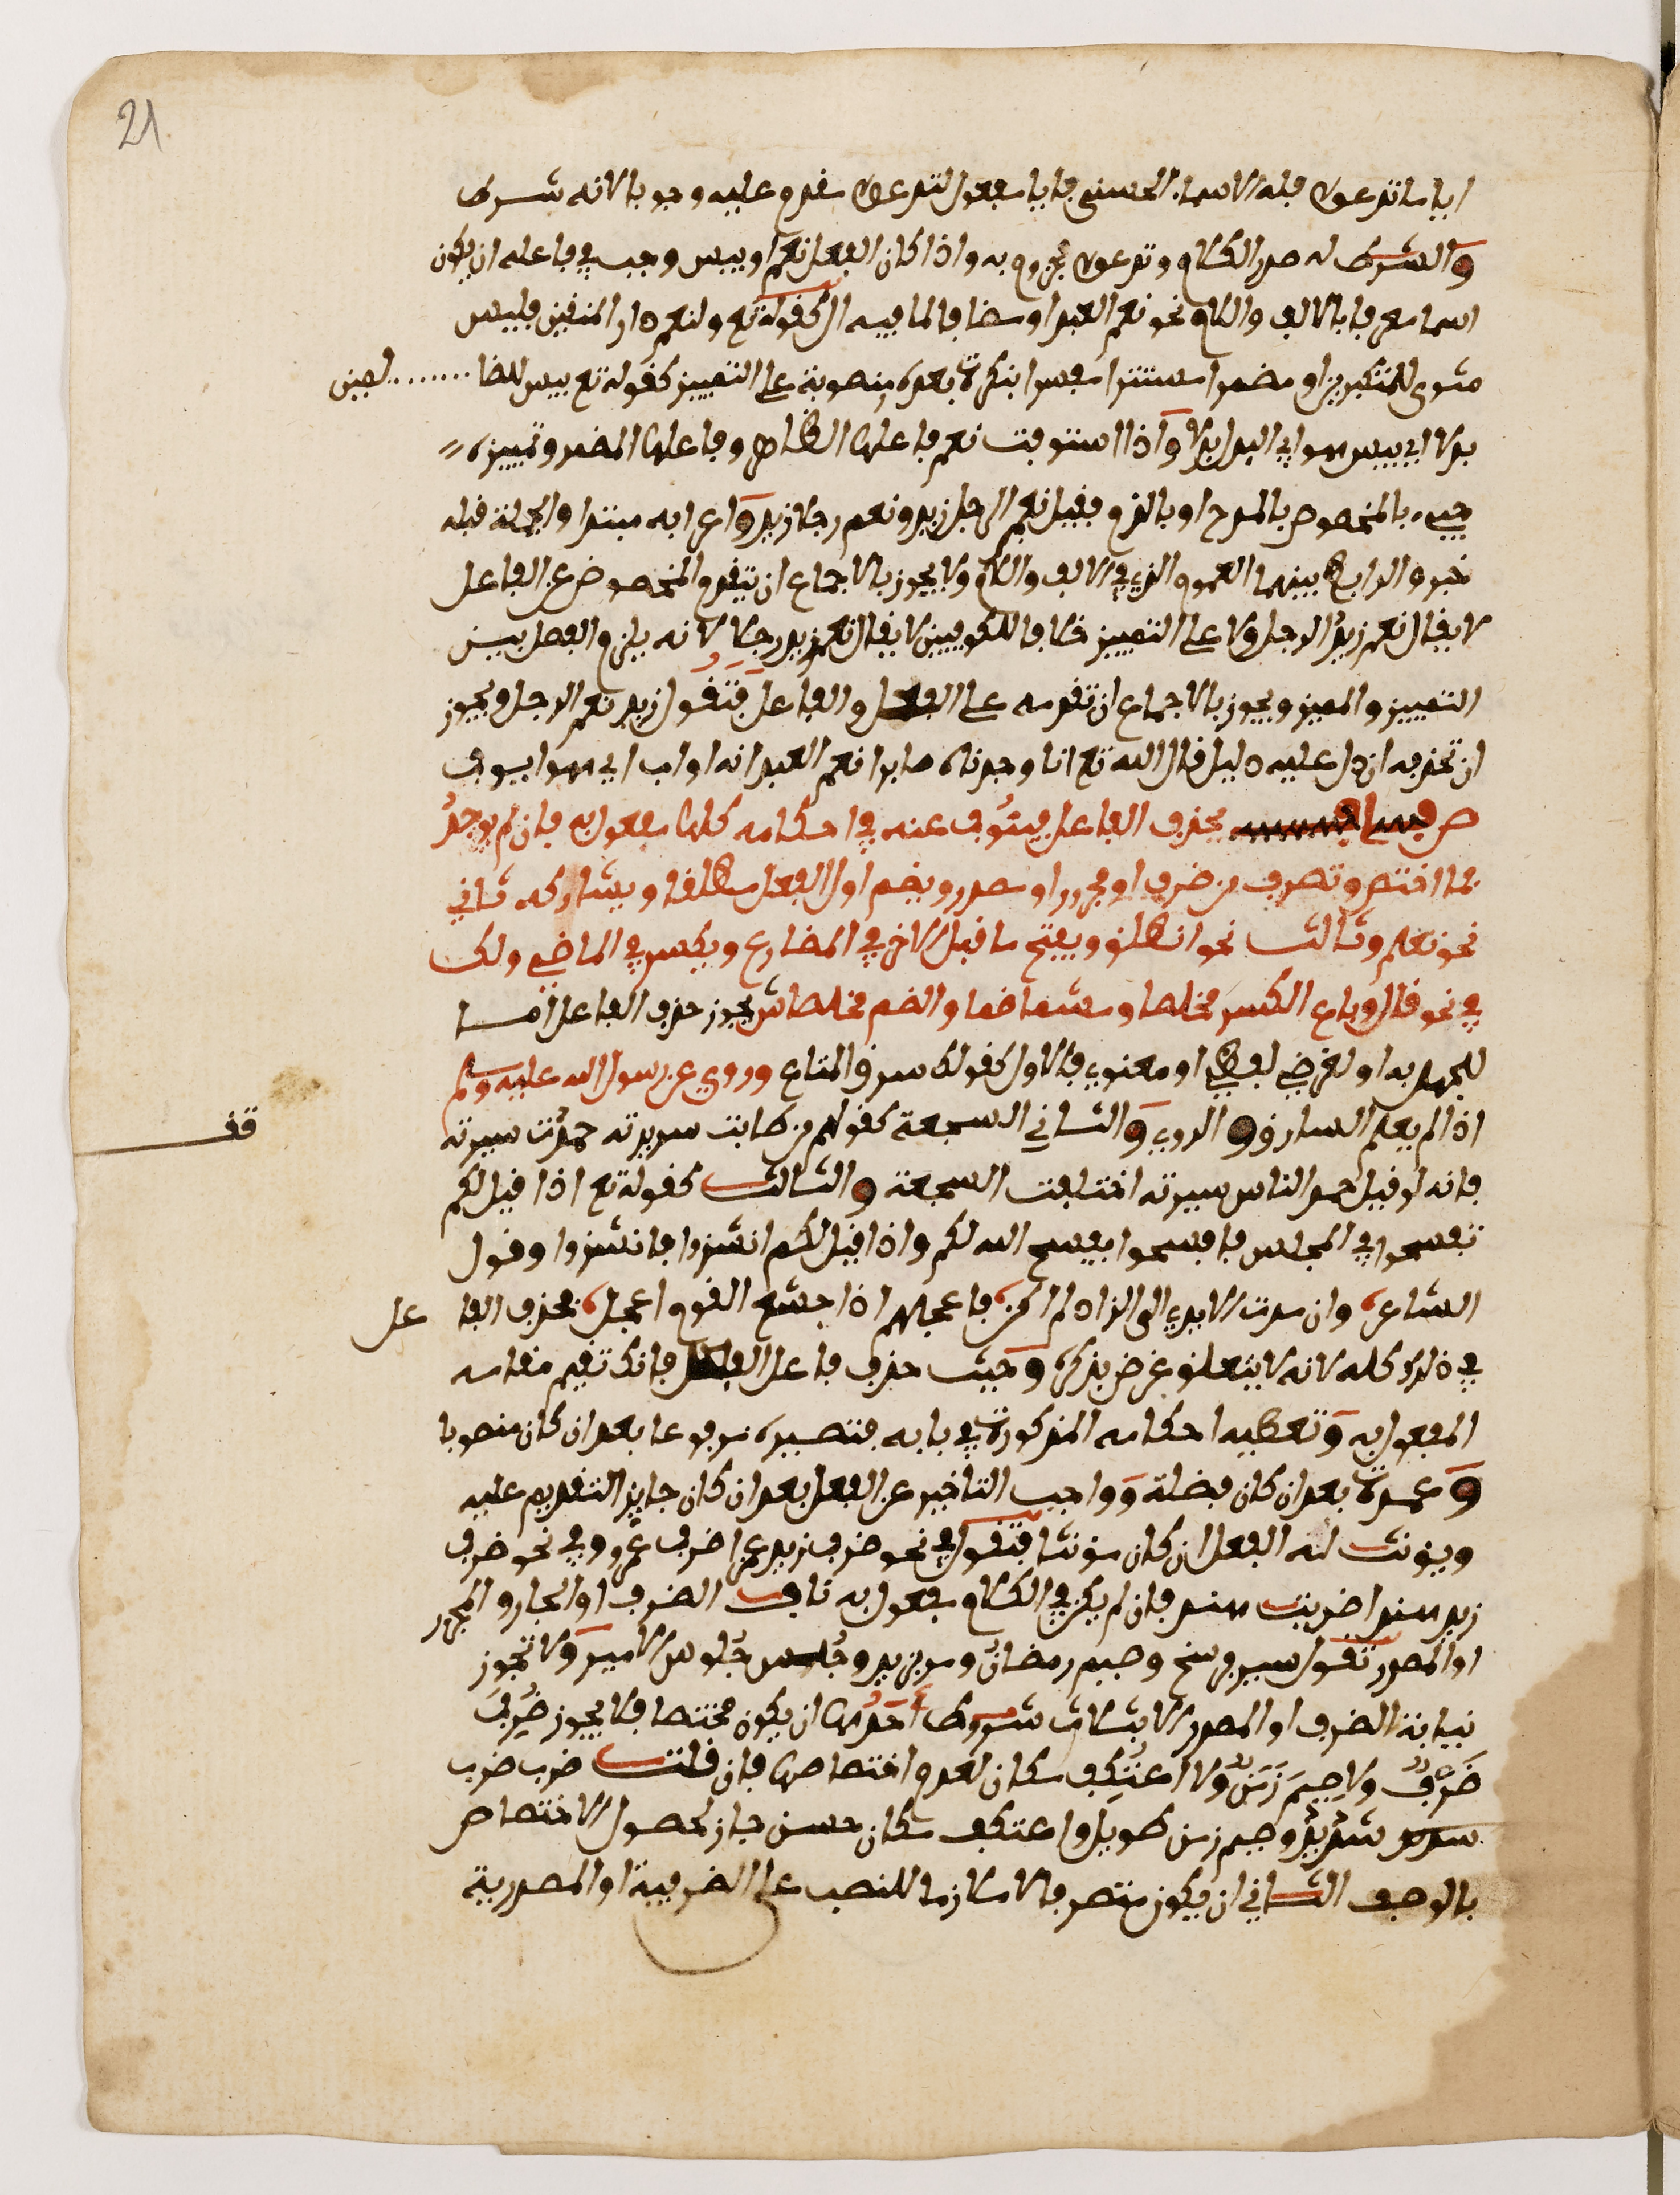 21
ايا ما تدعوا فله الاسماء الحسنى فايا مفعول لتدعوا مقدم عليه وجوبا لانه شرط
والشرط له صدر الكلام وتدعوا مجزوم به واذا كان الفعل نعم او بيس وجب في فاعله ان يكون
اسما معرفا بالالف واللام نحو نعم العبد او مضافا لما فيه ال كقوله تع ولنعم دار المتقين فلبيس
مثوى المتكبرين او مضمرا مستترا مفسرا بنكرة بعده منصوبة على التمييز كقوله تع بيس للظا........لمين
بدلا اي بيس هو اي البدل بدلا واذا استوفت نعم فاعلها الظاهر وفاعلها المضمر وتمييزه
جيء بالمخصوص بالمدح او بالذم فقيل نعم الرجل زيد ونعم رجلا زيد واعرابه مبتدا والجملة قبله
خبر والرابط بينهما العموم الذي في الالف واللام ولا يجوز بالاجماع ان يتقدم المخصوص عن الفاعل
لا يقال نعم زيد الرجل ولا على التمييز خلافا للكوفيين لا يقال نعم زيد رجلا لانه يلزم الفصل بين
التمييز والمميز ويجوز بالاجماع ان تقدمه على الفعل والفاعل فتقول زيد نعم الرجل ويجوز
ان تحذفه ان دل عليه دليل قال الله تع انا وجدناه صابرا نعم العبد انه اواب اي هو ايوب
ص يحذف الفاعل فينوب عنه في احكامه كلها مفعول به فان لم يوجد
بما اختص وتصرف من ضرف او مجرور او مصدر ويضم اول الفعل مطلقا ويشاركه ثاني
نحو تعلم وثالث نحو انطلق ويفتح ما قبل الاخر في المضارع ويكسر في الماضي ولك
في نحو قال وباع الكسر مخلصا ومشما ضما والضم مخلصا ش يجوز حذف الفاعل اما
للجهل به او لغرض لفظي او معنوي فالاول كقولك سرق المتاع وروي عن رسول الله عليه وسلم
اذا لم يعلم السارق و الروي والثاني السجعة كقولهم من طابت سريرته حمدت سيرته
قف
فانه لو قيل حمد الناس سيرته اختلفت السجعة والثالث كقوله تع اذا قيل لكم
تفسحوا في المجلس فافسحوا يفسح الله لكم واذا قيل لكم انشزوا فانشزوا وقول
الشاعر وان مدت الايدي الى الزاد لم اكن باعجلهم اذ اجشع القوم اعجل فحذف الفا عل
في ذلك كله لانه لا يتعلق غرض بذكره وحيث حذف فاعل الفعل فانك تقيم مقامه
المفعول به وتعطيه احكامه المذكورة في بابه فتصيره مرفوعا بعد ان كان منصوبا
وعمدة بعد ان كان فضلة وواجب التاخير عن الفعل بعد ان كان جايز التقديم عليه
ويونث له الفعل ان كان مونثا فتقول في نحو ضرب زيد عمرا ضرب عمرو وفي نحو ضرب
زيد هندا ضربت هند فان لم يكن في الكلام مفعول به ناب الضرف او الجار والمجرور
او المصدر تقول سير فرسخ وصيم رمضان ومر بزيد وجلس جلوس الامير ولا تجوز
نيابة الضرف او المصدر الا بثلاث شروط احدها ان يكون مختصا فلا يجوز ضرب
ضرب ولا صيم زمن ولا اعتكف مكان لعدم اختصاصها فان قلت ضرب ضرب
شديد وصيم زمن طويل واعتكف مكان حسن جاز لحصول الاختصاص
بالوصف الثاني ان يكون متصرفا لا ملازما للنصب على الضرفية او المصدرية